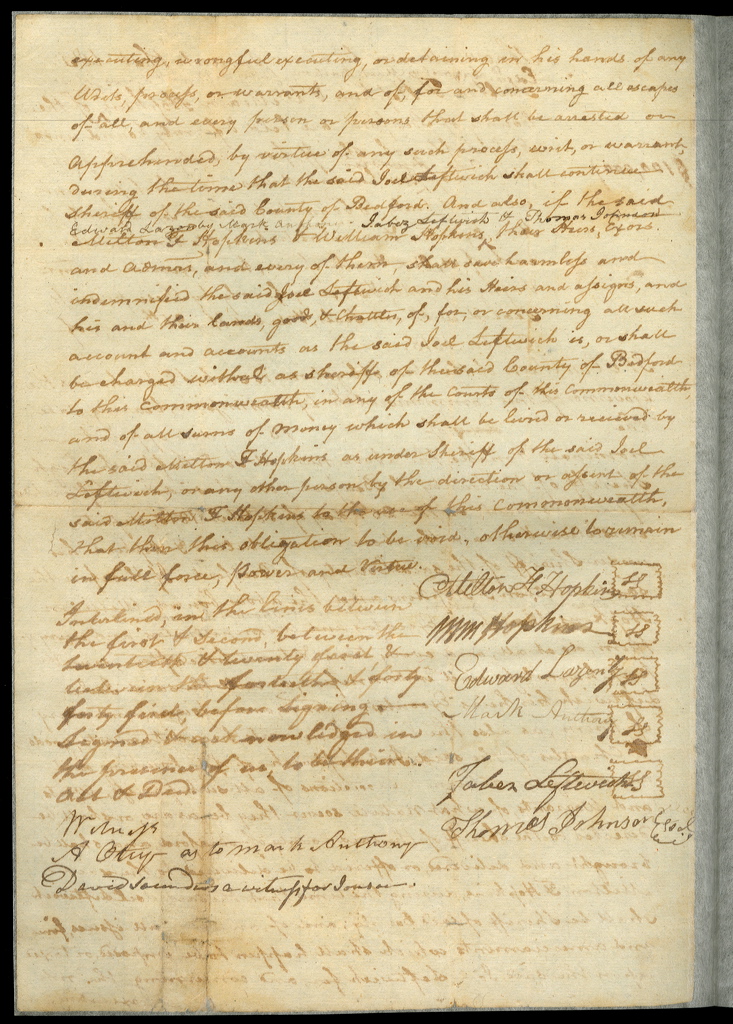 executing, wrongful executing, or detaining in his hands of any
Writs, process, or warrants, and of, for and concerning all escapes
of all, and every person or persons that shall be arrested or
Apprehended, by virtue of any such process, writ, or warrant,
during the time that the said Joel Leftwich shall continue
Sheriff of the said County of Bedford. And also, if the said
Edward Lazenby Mark Anthony Jabez Leftwich & Thomas Johnson
Milton F Hopkins & William Hopkins, their Heirs, Exors.
and Admors, and every of them, shall save harmless and
indemnified the said Joel Leftwich and his Heirs and assigns, and
his and their Lands, goods, & Chattles, of, for, or concerning all such
account and accounts as the said Joel Leftwich is, or shall
be charged withal as sheriff, of the said County of Bedford
to this Commonwealth, in any of the Courts of this Commonwealth
and of all sums of money which shall be livid or recieved by
the said Milton F Hopkins as under Sheriff of the said Joel
Leftwich, or any other person by the direction or assent of the
said Milton F Hopkins to the use of this Commonwealth,
that then this obligation to be void, otherwise to remain
in full force, Power and Virtue.
Milton F Hopkins LS
Interlined, in the lines between
the first & Second, between the
twentieth & twenty first &
between the fortieth & forty
forty first, before Signing
Signed & acknowledged in
the presence of us, to be their
Act & Deed
Wm Hopkins LS
Edward Lazenby LS
Mark Anthony LS
Jabez Leftwich LS
Thomas Johnson Seal
Witness
A Otey as to mark Anthony
David Saunders a witness for Jonson